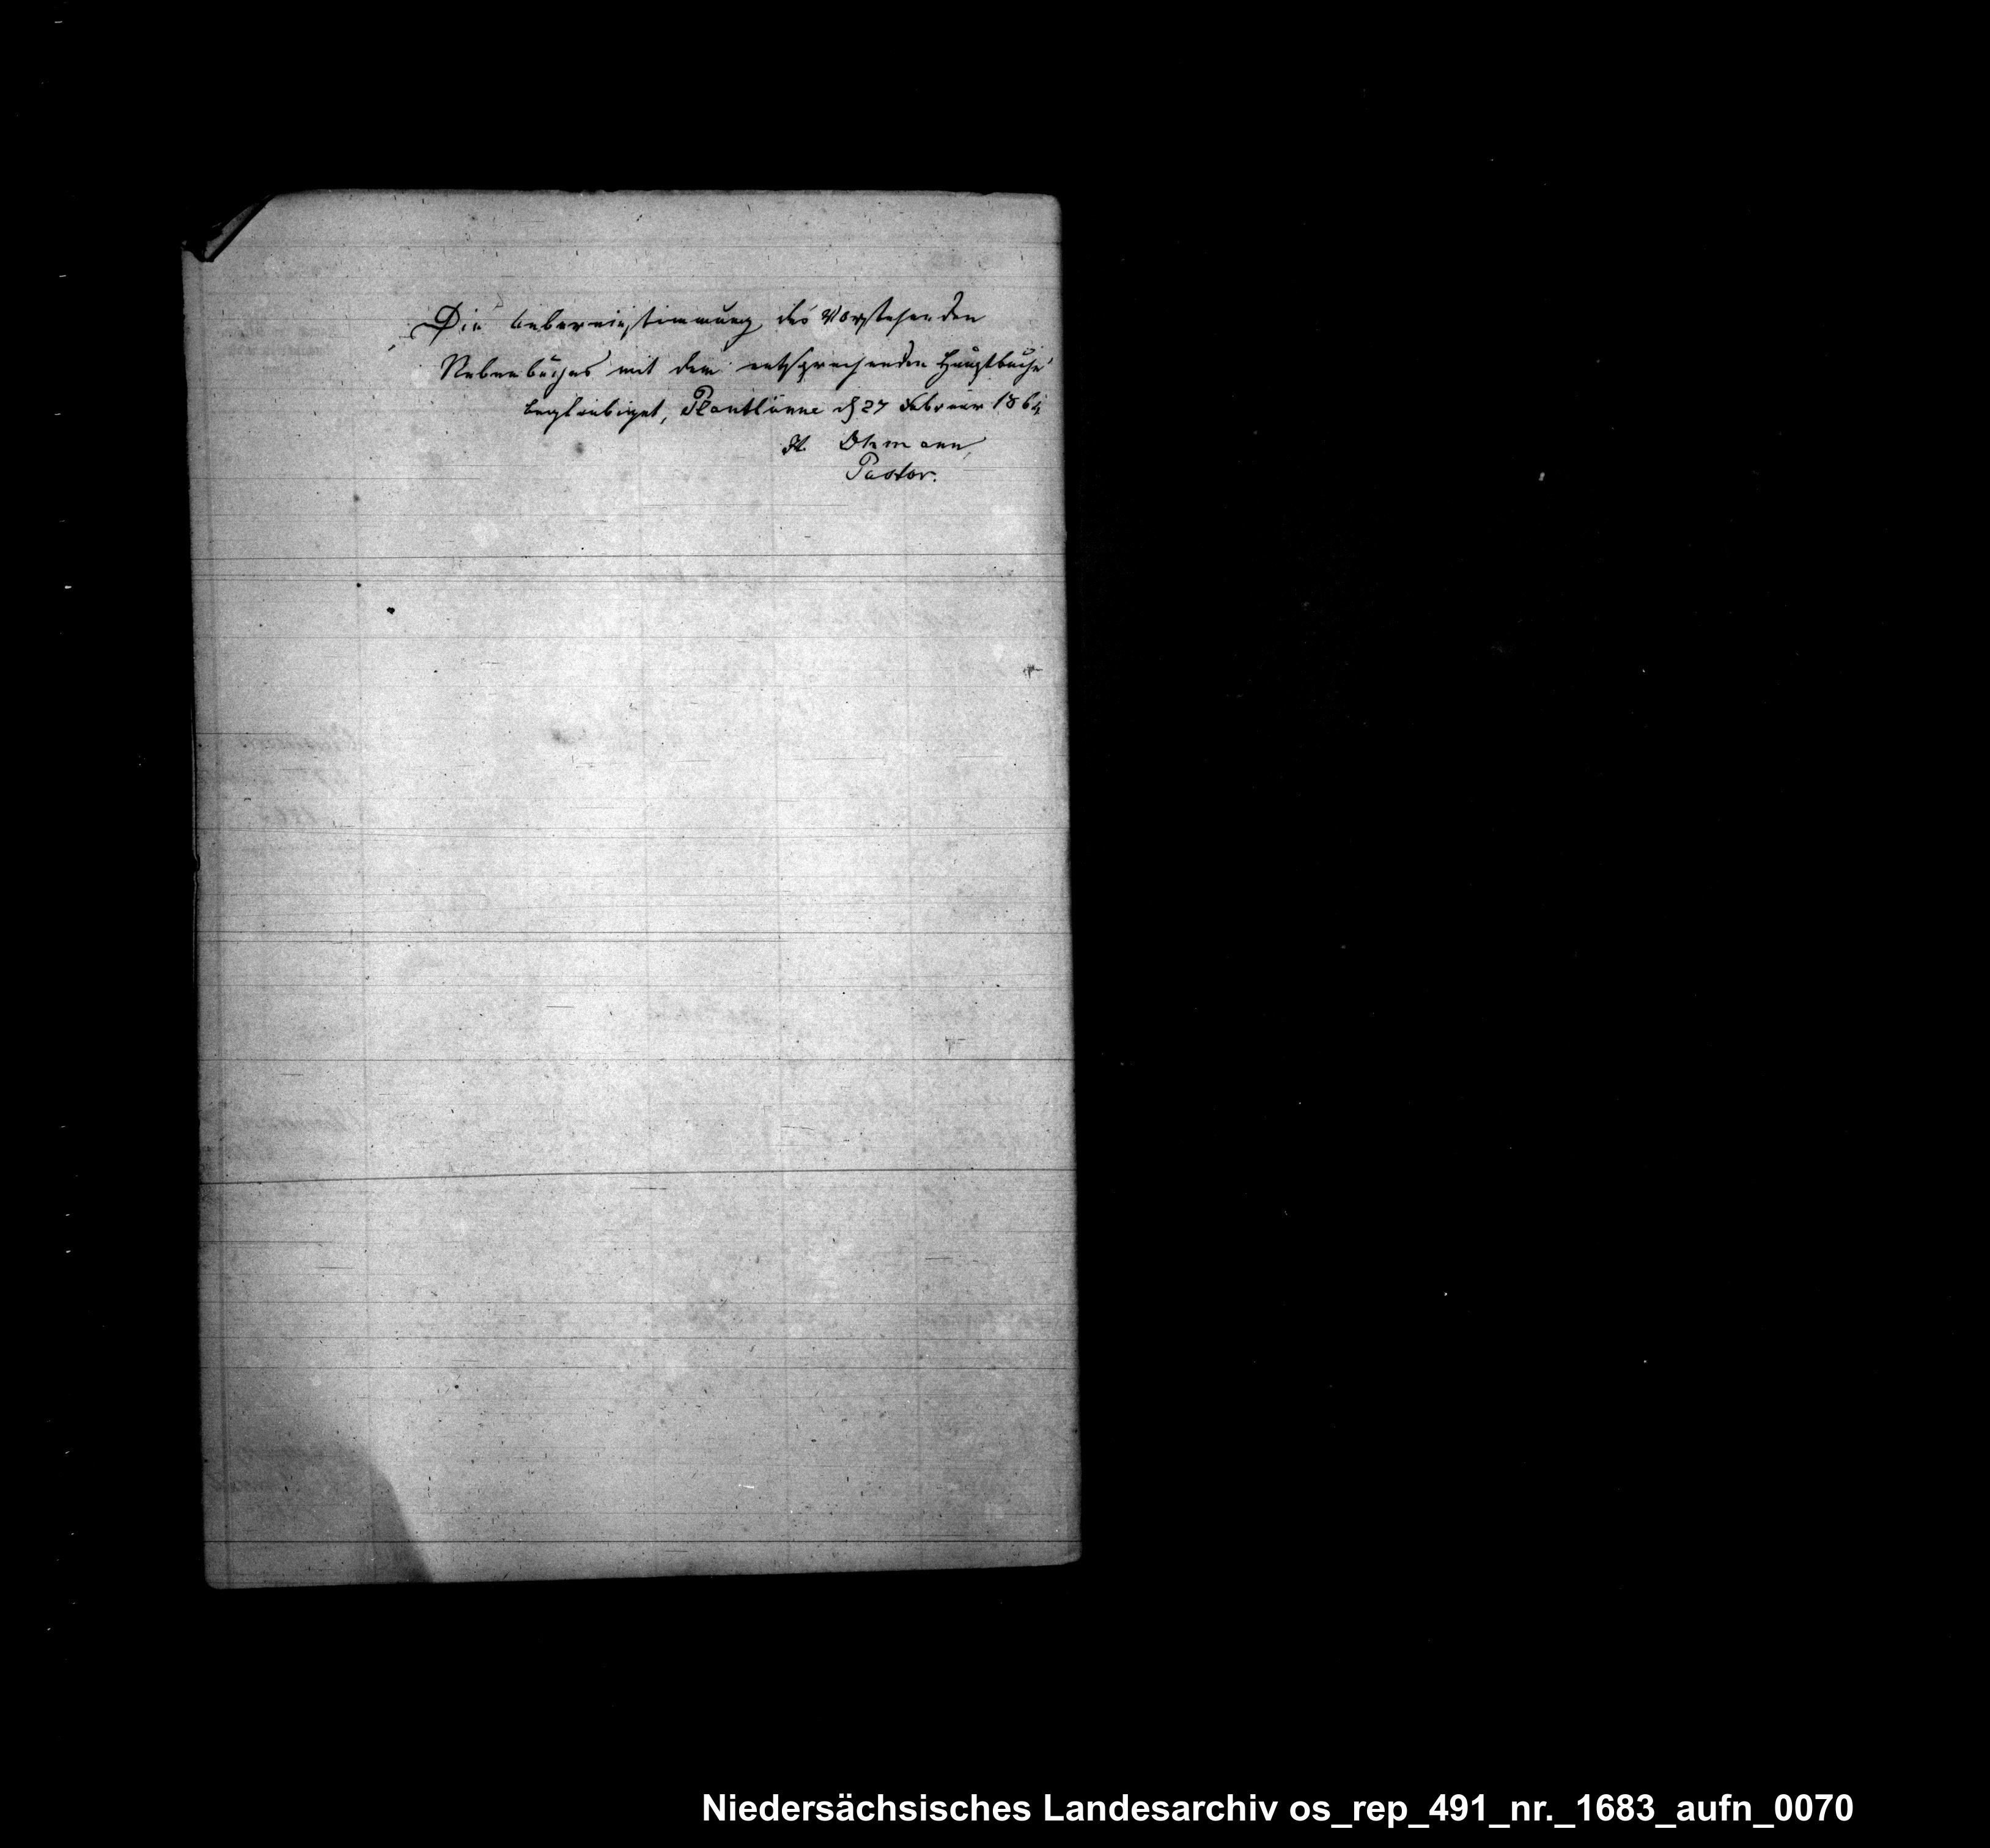 Die Uebereinstimmung des Vorstehenden
Nebenbuches mit dem entsprechenden Hauptbuche
beglaubiget, Plantlünne d 27 Februar 1864
H. Ohmann,
Pastor.
Niedersächsisches Landesarchiv os_rep_491_nr._1683_aufn_0070